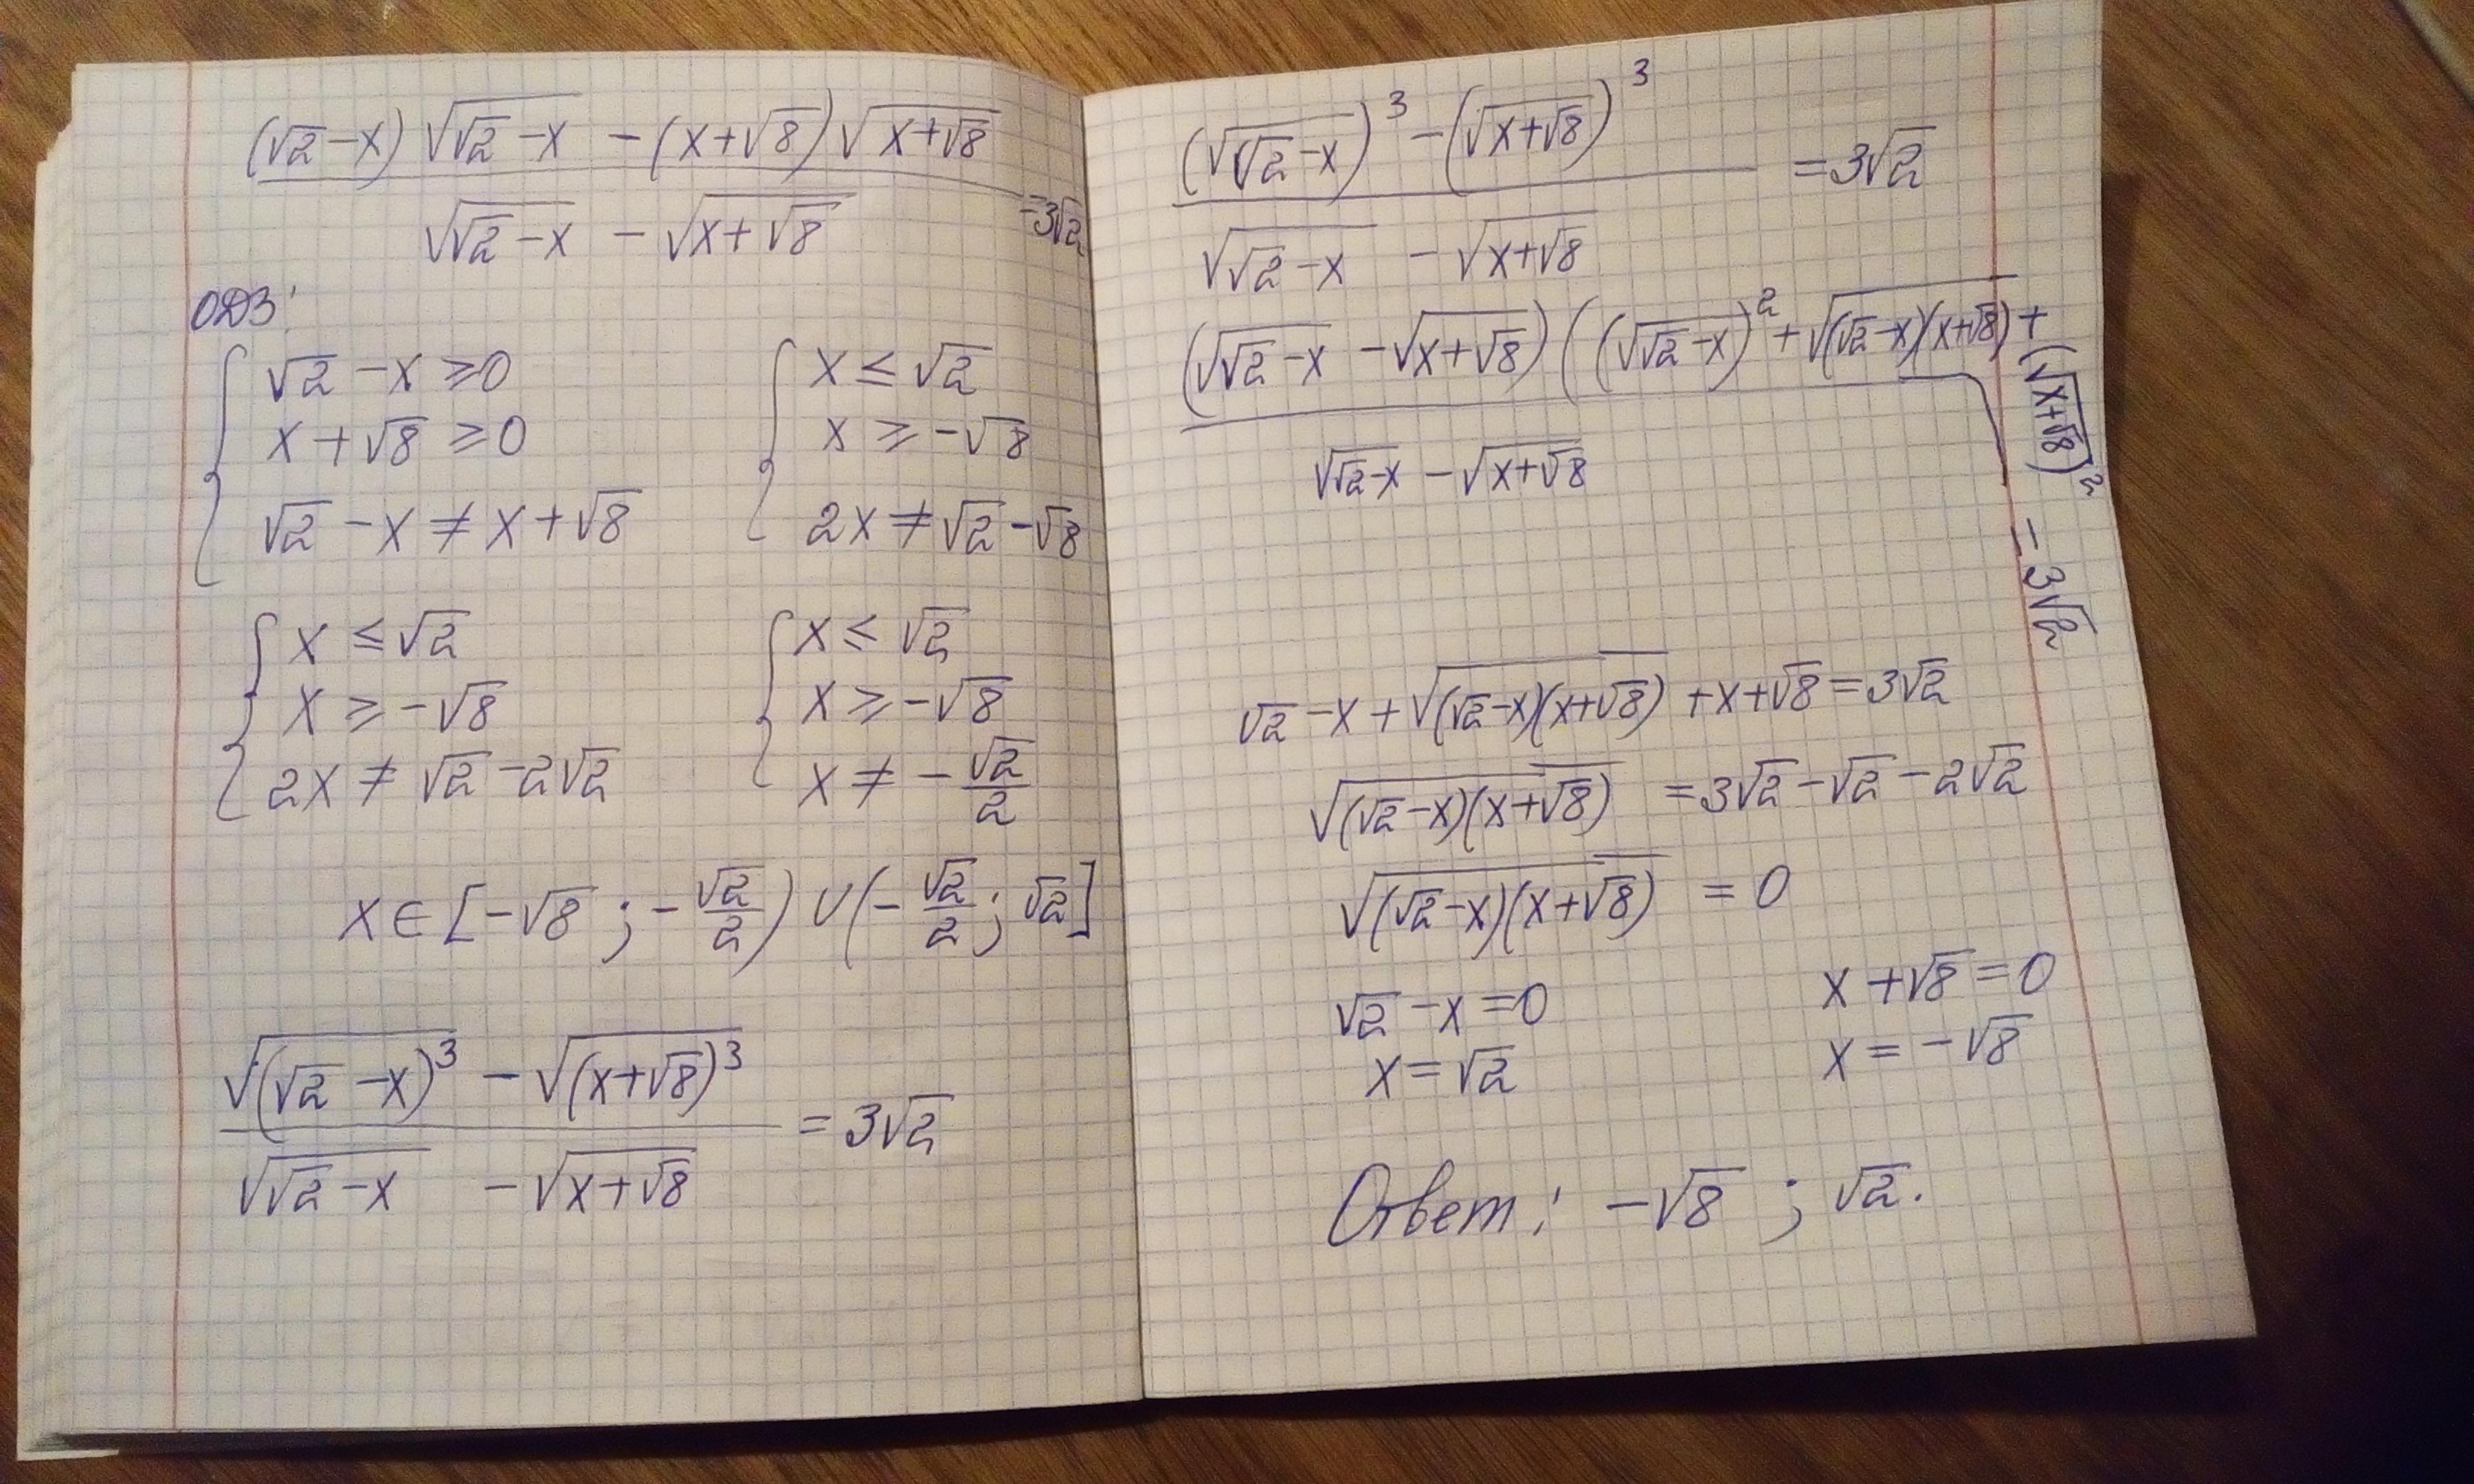 ((√2 − x)√(√2 − x) − (x + √8)√(x + √8)) / (√(√2 − x) − √(x + √8)) = 3√2
ОДЗ:
{ √2 − x ≥ 0
x + √8 ≥ 0
√2 − x ≠ x + √8
{ x ≤ √2
x ≥ −√8
2x ≠ √2 − √8
{ x ≤ √2
x ≥ −√8
2x ≠ √2 − 2√2
{ x ≤ √2
x ≥ −√8
x ≠ −√2/2
x ∈ [−√8 ; −√2/2) ∪ (−√2/2 ; √2]
(√((√2 − x)³) − √((x + √8)³)) / (√(√2 − x) − √(x + √8)) = 3√2
((√(√2 − x))³ − (√(x + √8))³) / (√(√2 − x) − √(x + √8)) = 3√2
(√(√2 − x) − √(x + √8))((√(√2 − x))² + √((√2 − x)(x + √8)) + (√(x + √8))² / (√(√2 − x) − √(x + √8)) = 3√2
√2 − x + √((√2 − x)(x + √8)) + x + √8 = 3√2
√((√2 − x)(x + √8)) = 3√2 − √2 − 2√2
√((√2 − x)(x + √8)) = 0
√2 − x = 0
x = √2
x + √8 = 0
x = −√8
Ответ: −√8 ; √2.